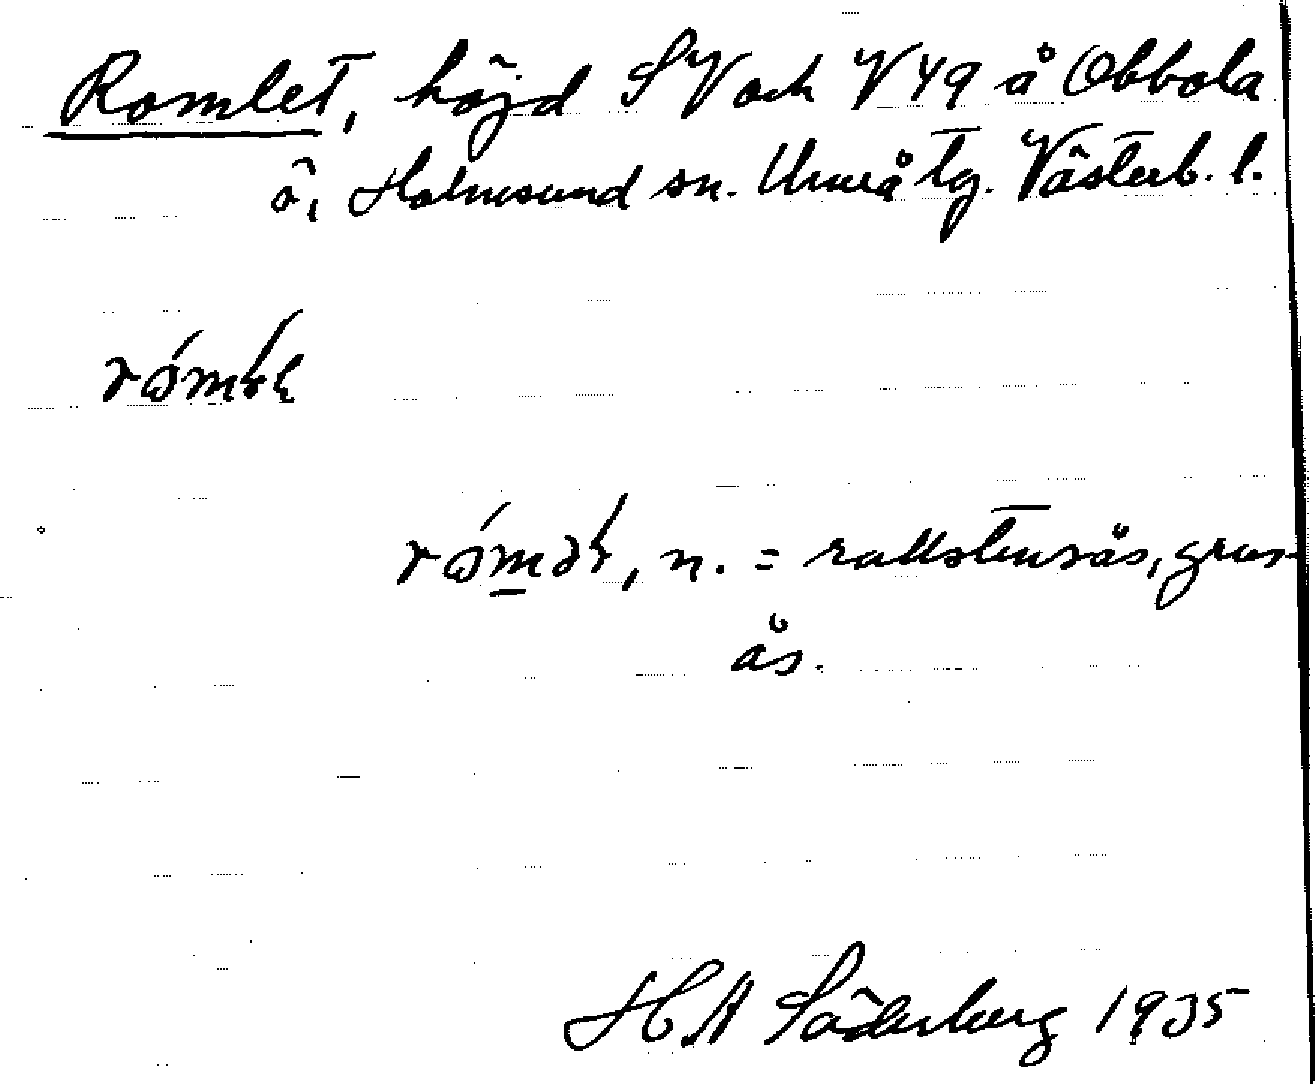 Romlet, höjd SV och V 49 å Obbola
ö, Holmsund sn. Umeå tg. Västerb. l.
n. = rullstensås, grus-
ås.
H A Söderberg 1935